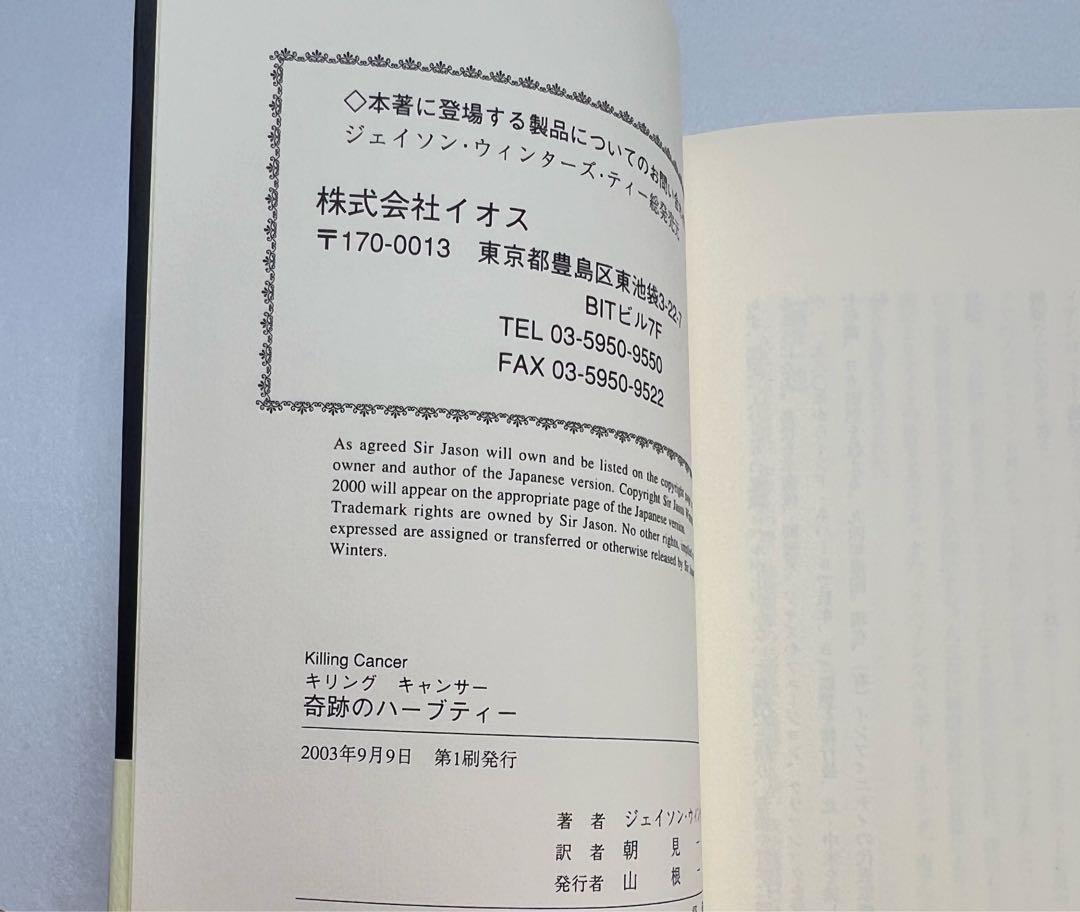 ◇本著に登場する製品についてのお問い合
ジェイソン・ウィンターズ・ティー総発売元
株式会社イオス
〒170-0013 東京都豊島区東池袋3-22-7
BITビル7F
TEL 03-5950-9550
FAX 03-5950-9522
As agreed Sir Jason will own and be listed on the copyright page
owner and author of the Japanese version. Copyright Sir Jason
2000 will appear on the appropriate page of the Japanese version.
Trademark rights are owned by Sir Jason. No other rights, implied
expressed are assigned or transferred or otherwise released by Sir
Winters.
Killing Cancer
キリング キャンサー
奇跡のハーブティー
2003年9月9日 第1刷発行
著 者 ジェイソン・ウィン
訳 者 朝 見
発行者 山 根